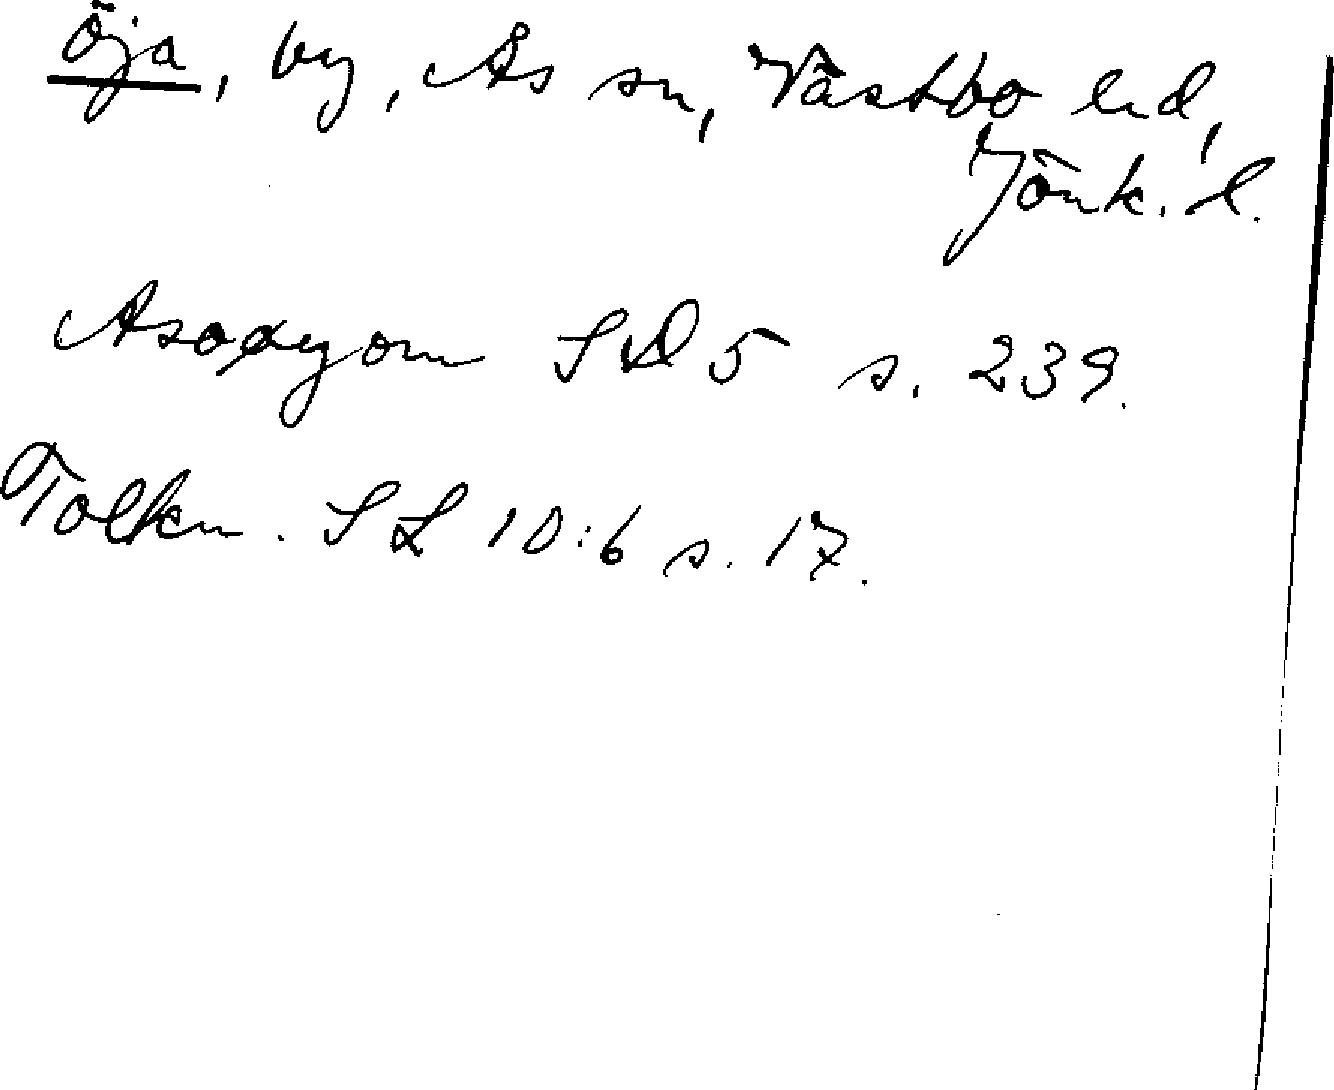 Öja, by, Ås sn, Västbo hd,
Jönk. l.
Asaøygom SD 5 s. 239.
Tolkn. SL 10:6 s. 17.